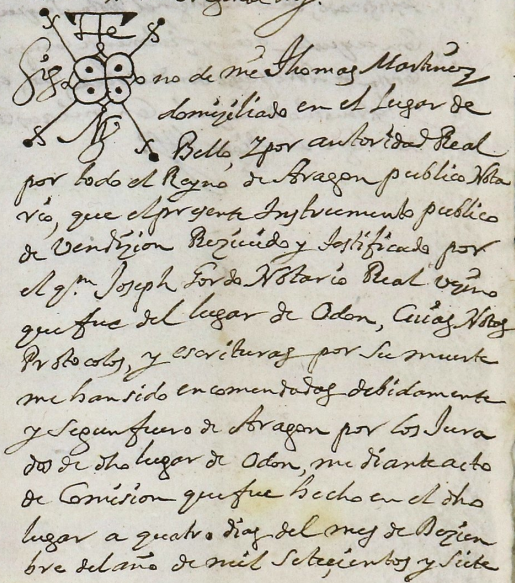 Sig no de me Thomas Martinez
domiziliado en el Lugar de
Bello, y por autoridad Real
por todo el Reyno de Aragon publico Nota
rio, que el presente Instrumento publico
de Vendizion Reziuido y testificado por
el qm Joseph Gordo Notario Real vezino
que fue del lugar de Odon, Cuias Notas
Protocolos, y escrituras por su muerte
me han sido encomendadas debidamente
y segun fuero de Aragon por los Jura
dos de dho lugar de Odon, mediante acto
de Comision que fue hecho en el dho
lugar a quatro dias del mes de Dezien
bre del año de mil setezientos y siete